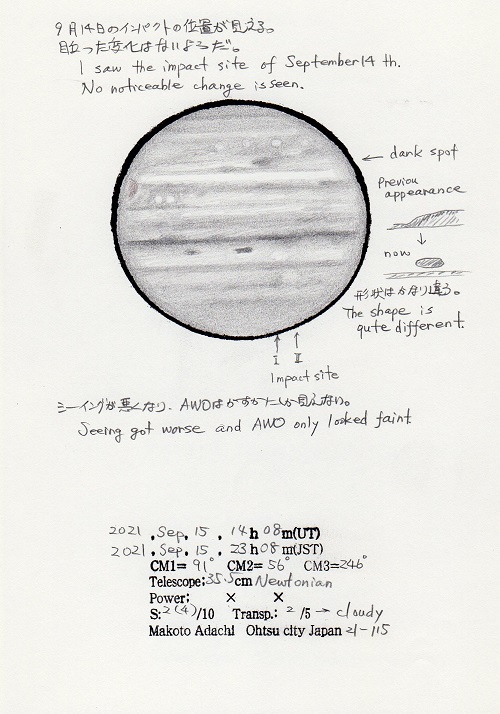 9月14日のインパクトの位置が見える。
目立った変化はないようだ。
I saw the impact site of September 14 th.
No noticeable change is seen.
← dark spot
Previou
appearance
↓
now
形状はかなり違う。
The shape is
qute different.
↑ ↑
I II
Impact site
シーイングが悪くなり、AWOはかすかにしか見えない。
Seeing got worse and AWO only looked faint.
2021 . Sep. 15 . 14h 08m(UT)
2021 . Sep. 15 . 23h 08m(JST)
CM1= 91° CM2= 56° CM3=246°
Telescope:35.5cm Newtonian
Power: × ×
S:2(4)/10 Transp.: 2 /5 → cloudy
Makoto Adachi Ohtsu city Japan 21-115